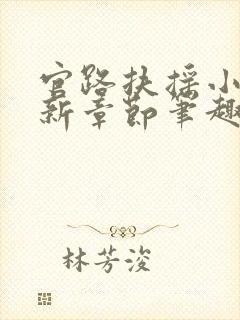 官路扶摇小
新章节笔趣
林芳浚